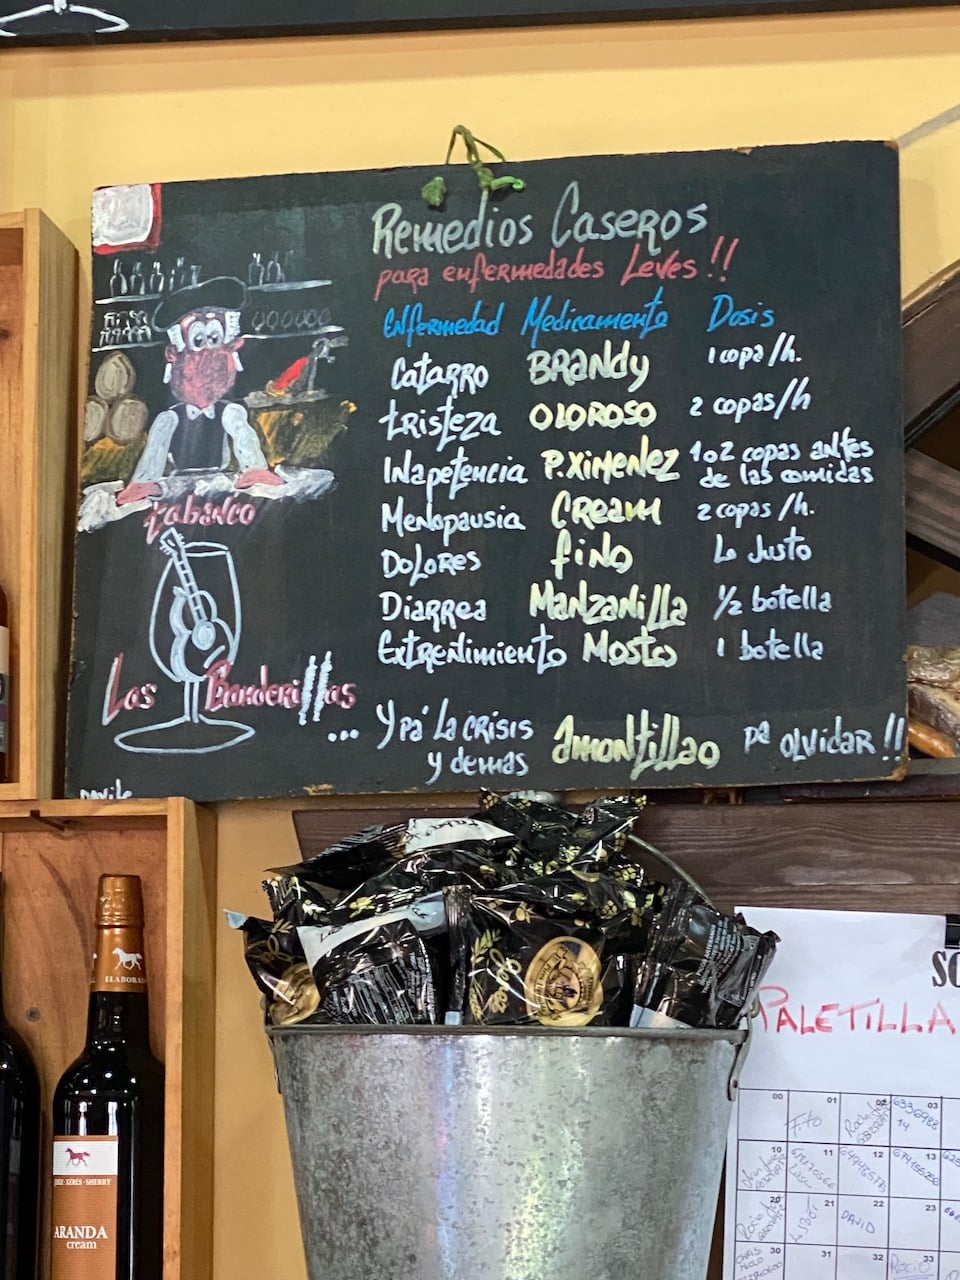 Remedios Caseros
para enfermedades Leves!!
Enfermedad Medicamento Dosis
Catarro Brandy 1 copa/h.
tristeza Oloroso 2 copas/h
Inapetencia P. Ximenez 1 o 2 copas antes de las comidas
Menopausia Cream 2 copas/h.
Dolores Fino Lo Justo
Diarrea Manzanilla 1/2 botella
Extreñimiento Mostos 1 botella
... Y pa' La crisis y demas Amontillao pa olvidar!!
tabanco
Las Banderillas
ELABORA
XERÉS-SHERRY
ARANDA
cream
SO
PALETILLA
00 01 02 03
Fito
14
10 11 12 13
20 21 22 23
DAVID
30 31 32 33
Rocio